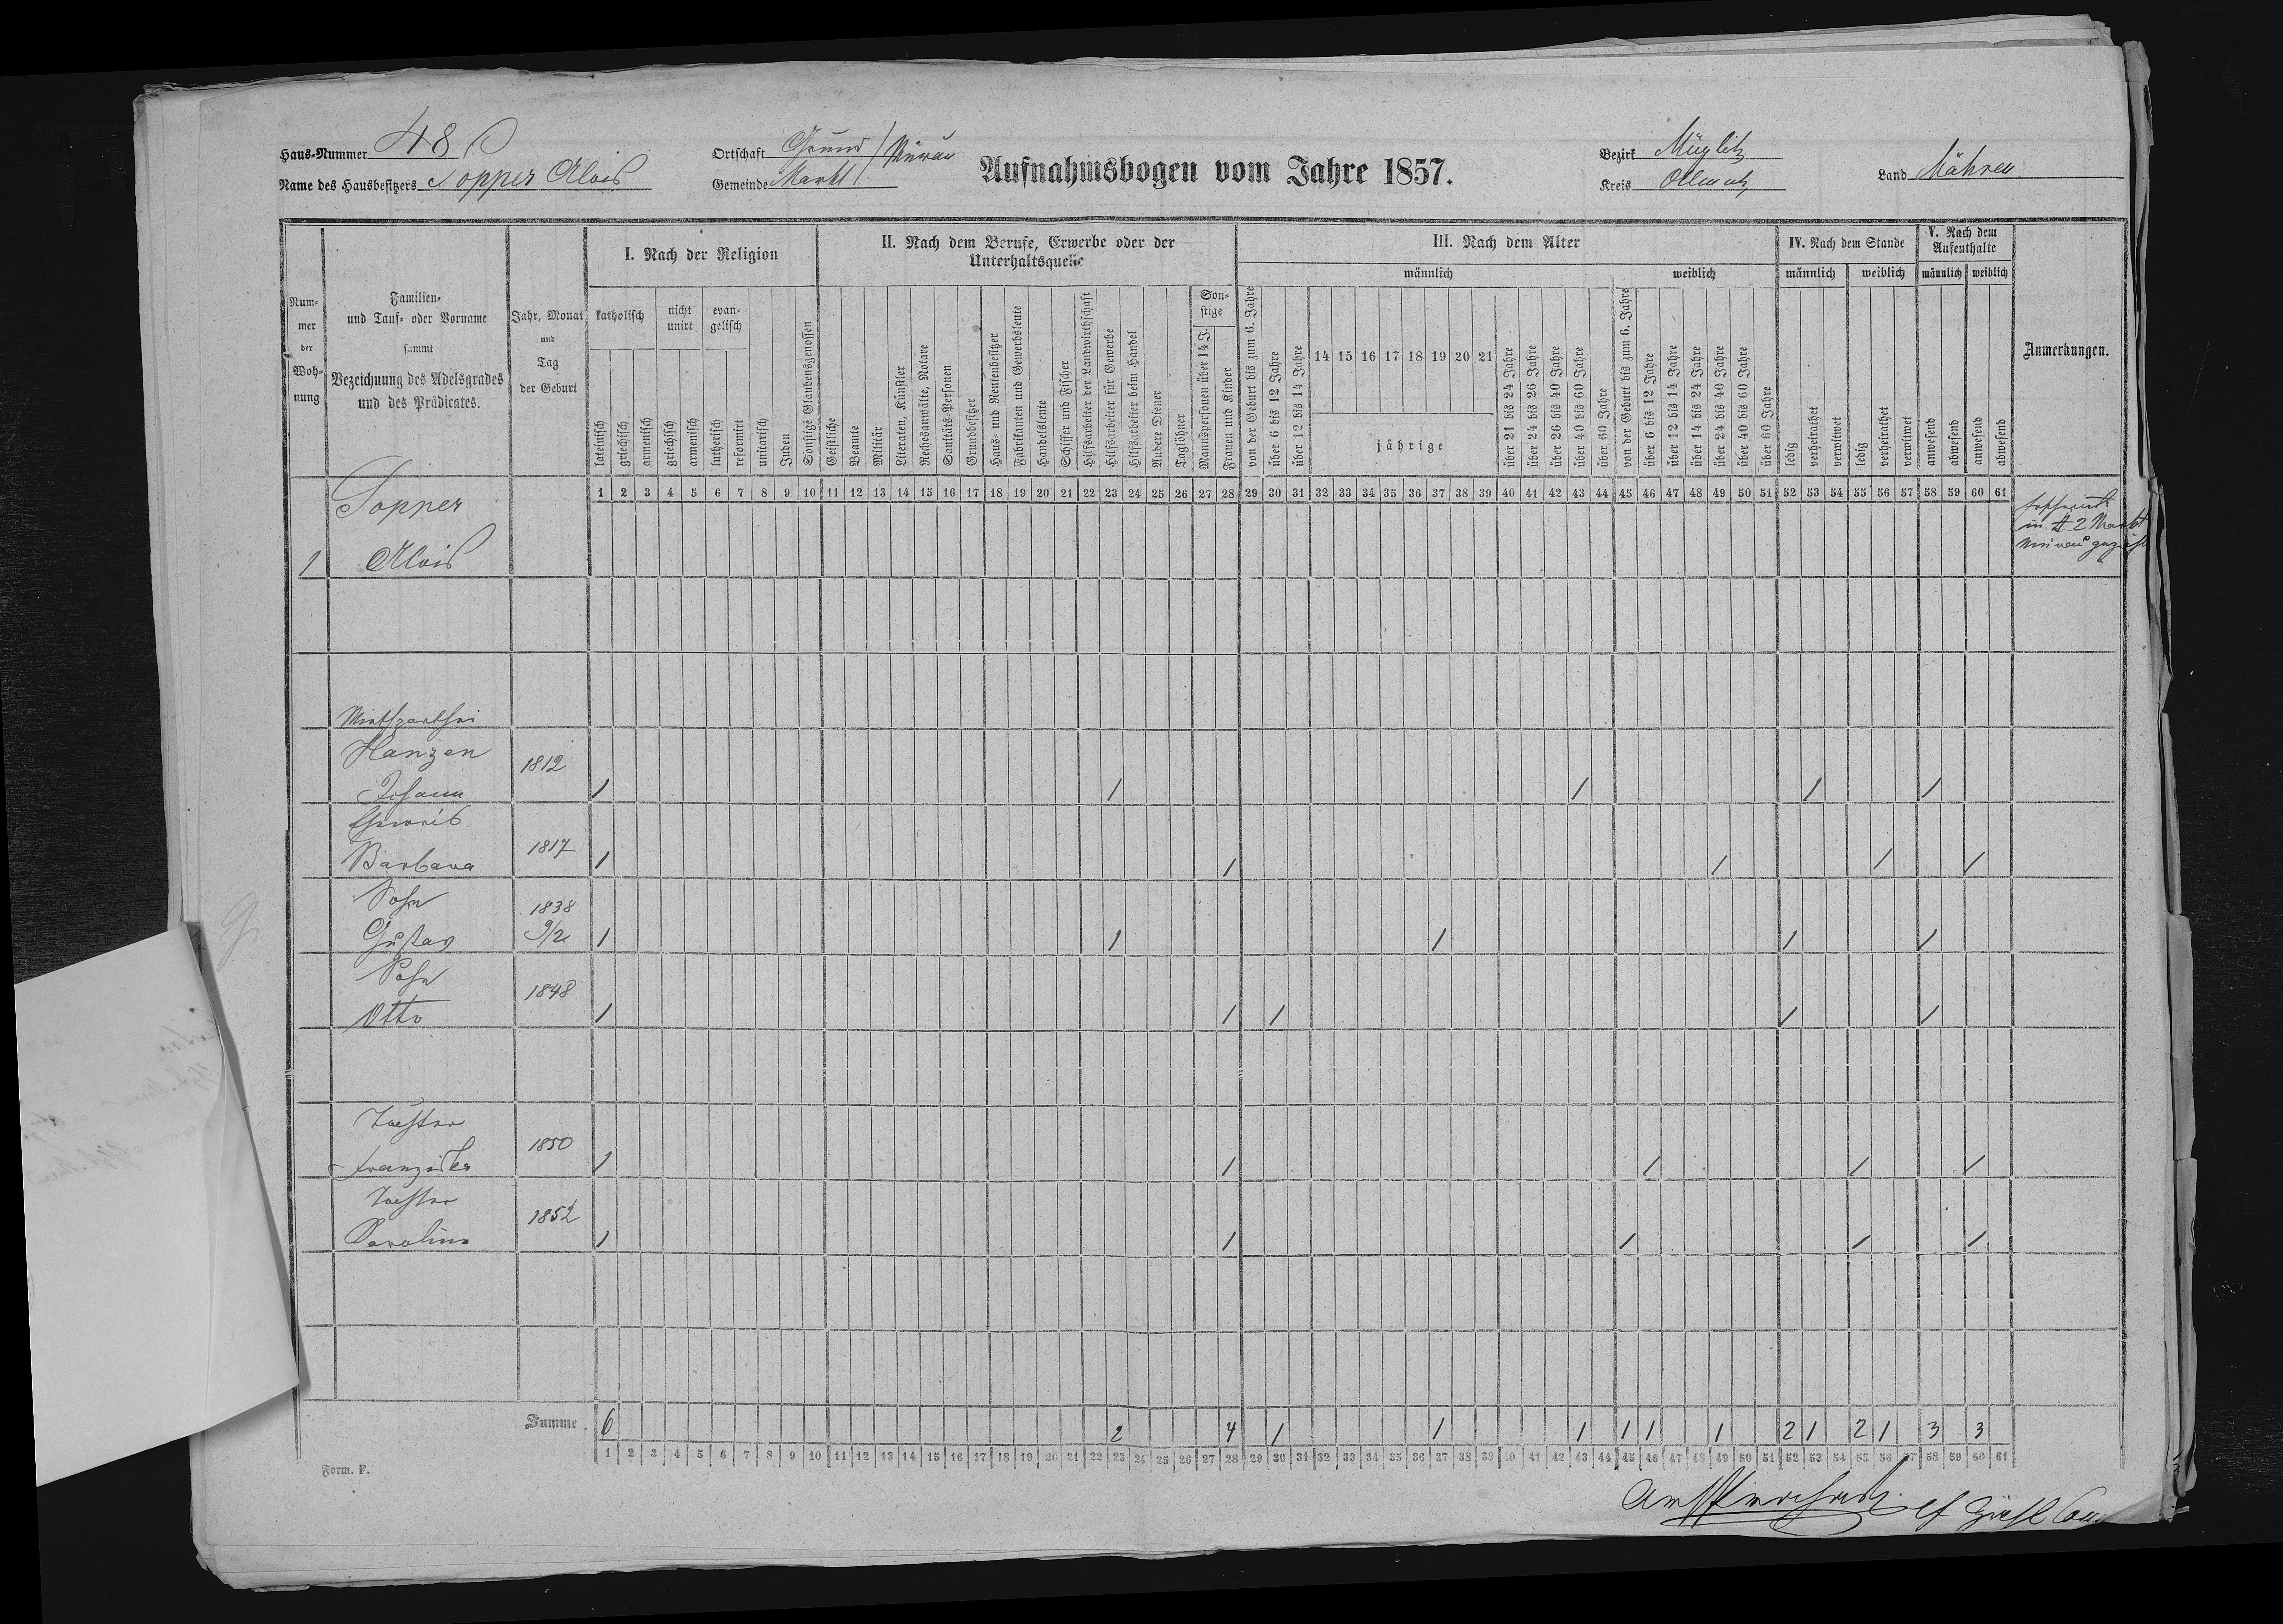 Haus-Nummer 48
Name des Hausbesitzers Sopper Alois
Ortschaft Grund / Mürau
Gemeinde Markt
Aufnahmsbogen vom Jahre 1857.
Bezirk Müglitz
Kreis Ollmutz
Land Mähren
Num-
mer
der
Woh-
nung
Familien-
und Tauf- oder Vorname
sammt
Bezeichnung des Adelsgrades
und des Prädicates.
Jahr, Monat
und
Tag
der Geburt
I. Nach der Religion
katholisch
nicht
unirt
evan-
gelisch
lateinisch
griechisch
armenisch
griechisch
armenisch
lutherisch
reformirt
unitarisch
Juden
Sonstige Glaubensgenossen
II. Nach dem Berufe, Erwerbe oder der
Unterhaltsquelle
Geistliche
Beamte
Militär
Literaten, Künstler
Rechtsanwälte, Notare
Sanitäts-Personen
Grundbesitzer
Haus- und Rentenbesitzer
Fabrikanten und Gewerbsleute
Handelsleute
Schiffer und Fischer
Hilfsarbeiter der Landwirthschaft
Hilfsarbeiter für Gewerbe
Hilfsarbeiter beim Handel
Andere Diener
Taglöhner
Son-
stige
Mannspersonen über 14 J.
Frauen und Kinder
III. Nach dem Alter
männlich
von der Geburt bis zum 6. Jahre
über 6 bis 12 Jahre
über 12 bis 14 Jahre
14 15 16 17 18 19 20 21
jährige
über 21 bis 24 Jahre
über 24 bis 26 Jahre
über 26 bis 40 Jahre
über 40 bis 60 Jahre
über 60 Jahre
weiblich
von der Geburt bis zum 6. Jahre
über 6 bis 12 Jahre
über 12 bis 14 Jahre
über 14 bis 24 Jahre
über 24 bis 40 Jahre
über 40 bis 60 Jahre
über 60 Jahre
IV. Nach dem Stande
männlich weiblich
ledig
verheirathet
verwitwet
ledig
verheirathet
verwitwet
V. Nach dem
Aufenthalte
männlich weiblich
anwesend
abwesend
anwesend
abwesend
Anmerkungen.
1 2 3 4 5 6 7 8 9 10 11 12 13 14 15 16 17 18 19 20 21 22 23 24 25 26 27 28 29 30 31 32 33 34 35 36 37 38 39 40 41 42 43 44 45 46 47 48 49 50 51 52 53 54 55 56 57 58 59 60 61
Sopper
1 Alois
in # 2 Markt
Hanzen
1812
Johann 1 1 1 1 1
Eheweib
1817
Barbara 1 1 1 1 1
Sohn
1838
Gustav 9/2 1 1 1 1 1
Sohn
1848
Otto 1 1 1 1 1
Tochter
1850
Franziska 1 1 1 1 1
Tochter
1852
Carolina 1 1 1 1 1
Summe 6 2 4 1 1 1 1 1 1 2 1 2 1 3 3
1 2 3 4 5 6 7 8 9 10 11 12 13 14 15 16 17 18 19 20 21 22 23 24 25 26 27 28 29 30 31 32 33 34 35 36 37 38 39 40 41 42 43 44 45 46 47 48 49 50 51 52 53 54 55 56 57 58 59 60 61
Form. F.